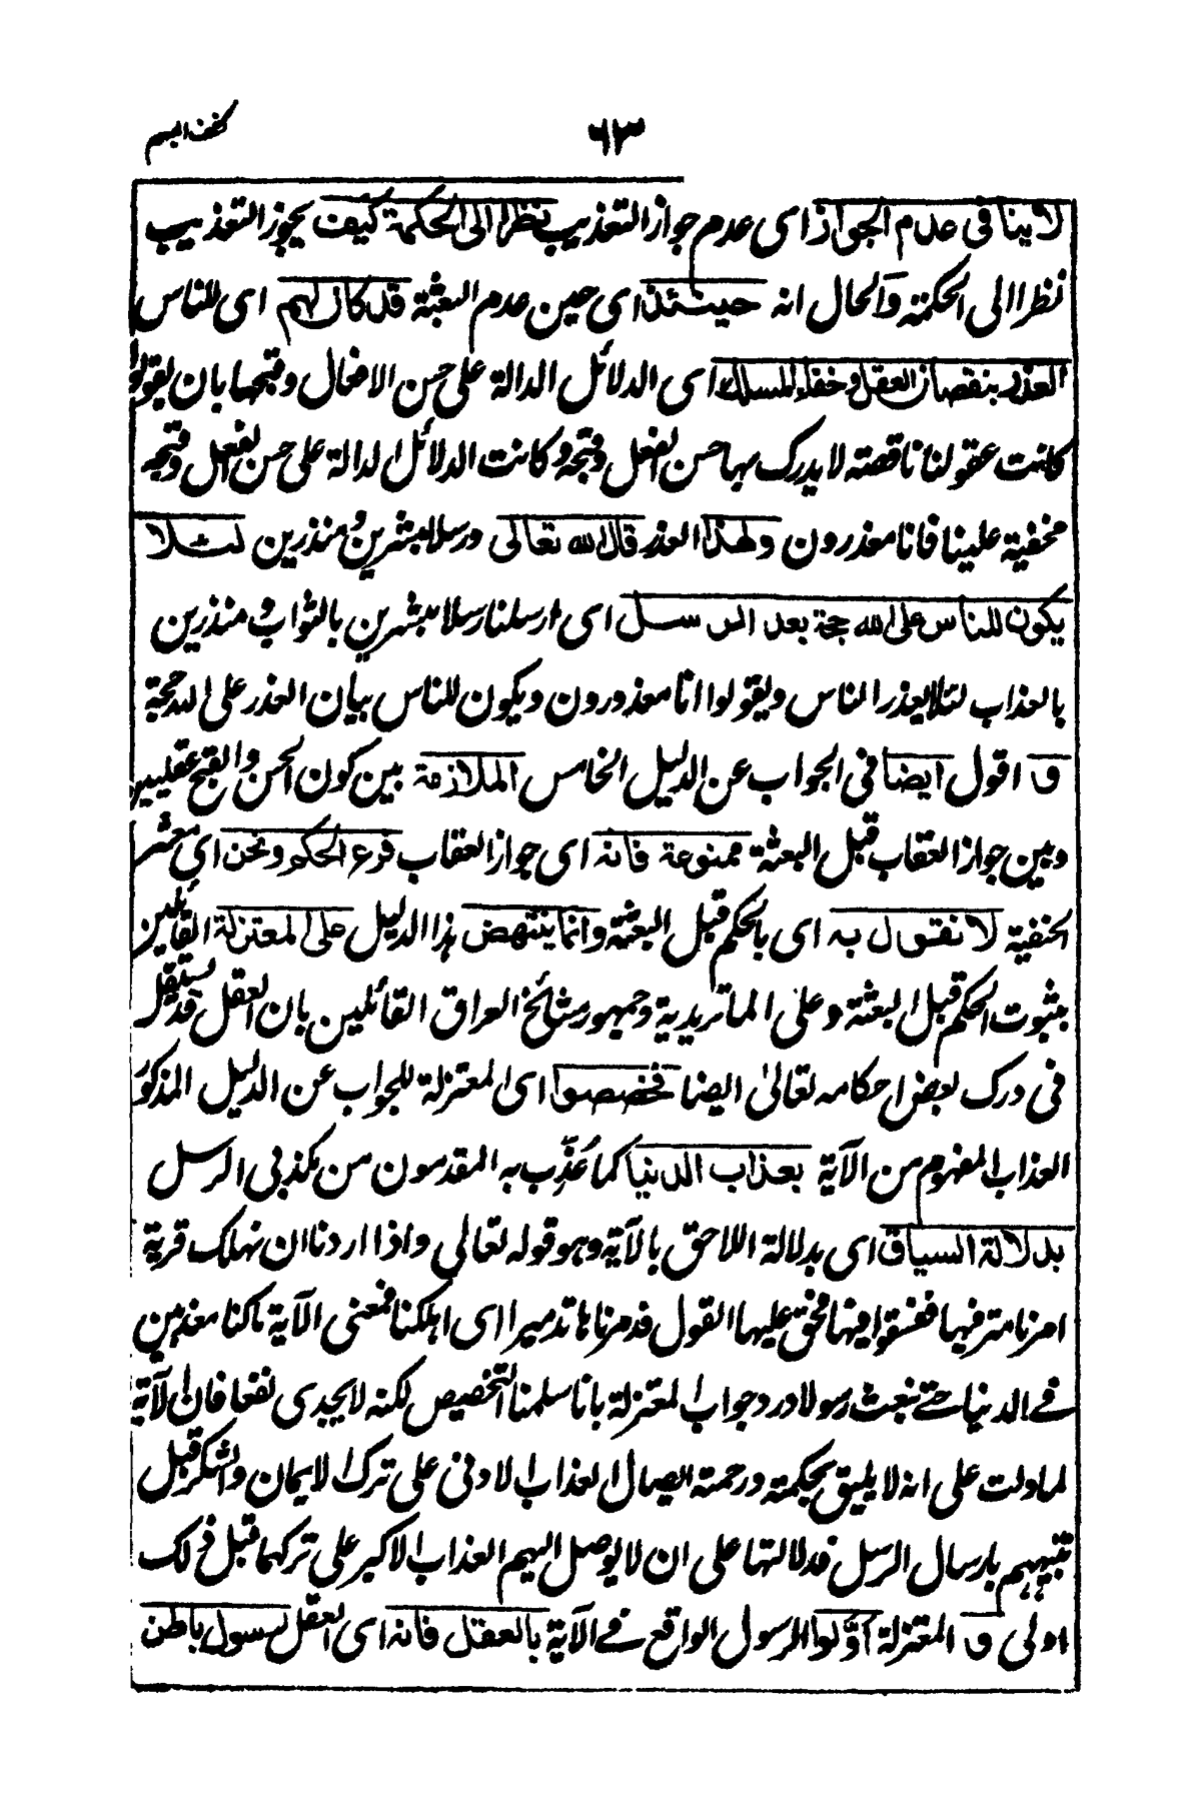 كشف المبهم
٦٣
لا ينافى عدم الجواز اى عدم جواز التعذيب نظرا الى الحكمة كيف يجوز التعذيب
نظرا الى الحكمة والحال انه حينئذ اى حين عدم البعثة قد كان لهم اى للناس
العذر بنقصان العقل وخفاء المسلك اى الدلائل الدالة على حسن الافعال وقبحها بان يقولوا
كانت عقولنا ناقصة لا يدرك بها حسن الفعل وقبحه وكانت الدلائل الدالة على حسن الفعل وقبحه
مخفية علينا فانا معذرون ولهذا العذر قال الله تعالى ورسلا مبشرين ومنذرين لئلا
يكون للناس على الله حجة بعد الرسل اى ارسلنا رسلا مبشرين بالثواب ومنذرين
بالعذاب لئلا يعذر الناس ويقولوا انا معذورون ويكون للناس ببيان العذر على الله حجة
و اقول ايضا فى الجواب عن الدليل الخامس الملازمة بين كون الحسن والقبح عقليين
وبين جواز العقاب قبل البعثة ممنوعة فانه اى جواز العقاب فرع الحكم ونحن اى معشر
الحنفية لا نقول به اى بالحكم قبل البعثة وانما ينتهض هذا الدليل على المعتزلة القائلين
بثبوت الحكم قبل البعثة وعلى الماتريدية وجمهور مشائخ العراق القائلين بان العقل قد يستقل
فى درك بعض احكامه تعالى ايضا فخصصوا اى المعتزلة للجواب عن الدليل المذكور
العذاب المفهوم من الآية بعذاب الدنيا كما عُذّب به المقدمون من مكذبى الرسل
بدلالة السياق اى بدلالة اللاحق بالآية وهو قوله تعالى واذا اردنا ان نهلك قرية
امرنا مترفيها ففسقوا فيها فحق عليها القول فدمرناها تدميرا اى اهلكنا فمعنى الآية ما كنا معذبين
فے الدنيا حتے نبعث رسولا ورد جواب المعتزلة بانا سلمنا التخصيص لكنه لا يجدى نفعا فان الآية
لما دلت على انه لا يليق بحكمته ورحمته ايصال العذاب الادنى على ترك الايمان والشكر قبل
تنبيههم بارسال الرسل فدلالتها على ان لا يوصل اليهم العذاب الاكبر على تركهما قبل ذلك
اولى و المعتزلة اوّلوا الرسول الواقع فے الآية بالعقل فانه اى العقل رسول باطن